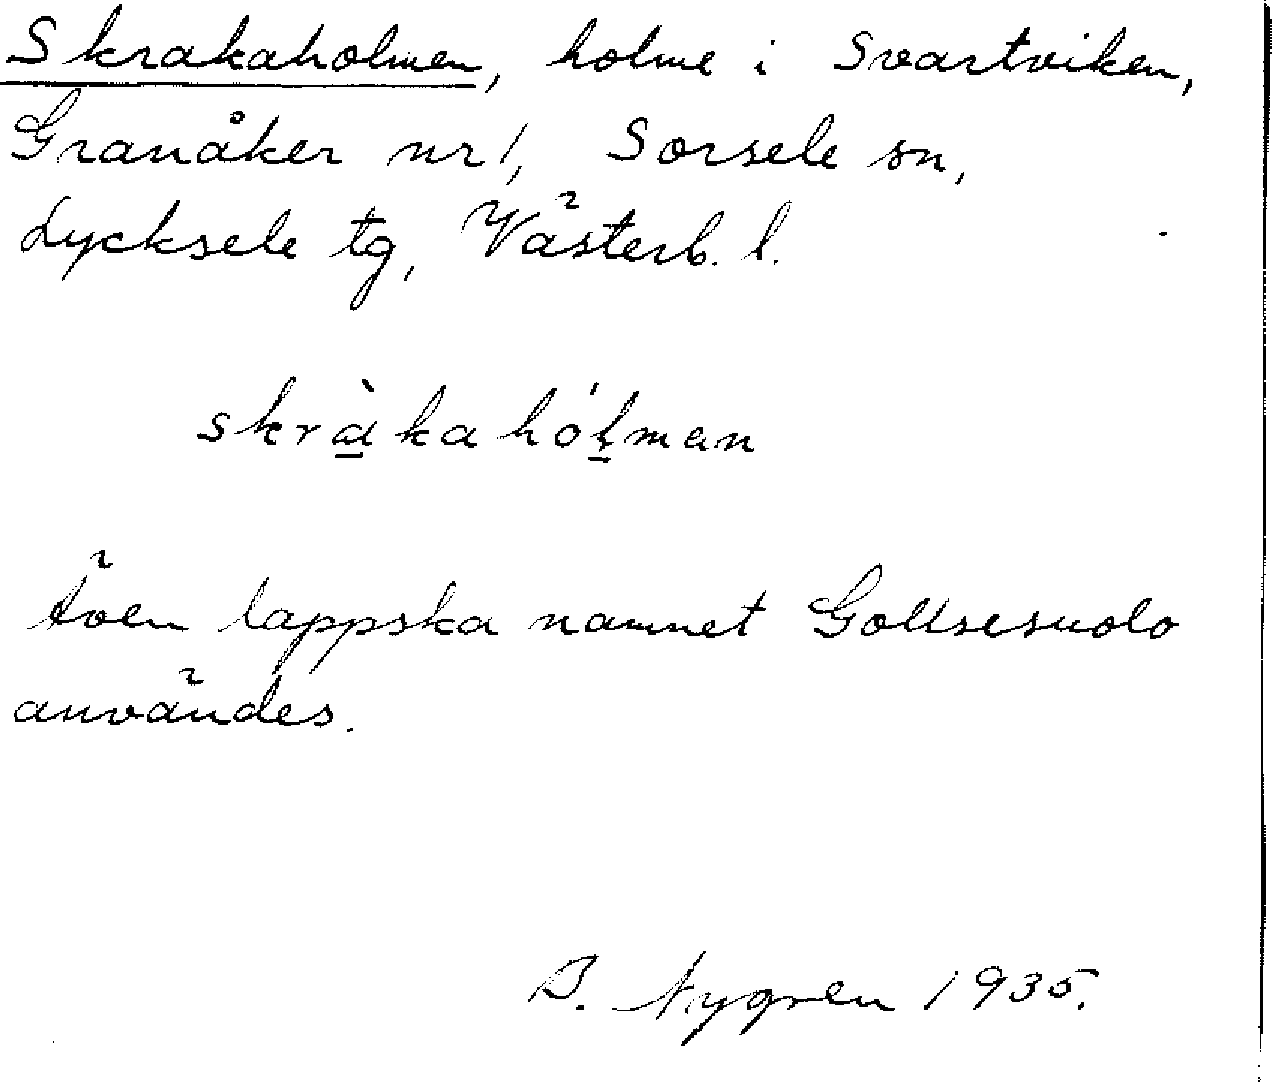 Skrakaholmen, holme i Svartviken,
Granåker nr 1, Sorsele sn,
Lycksele tg, Västerb. l.
skràkahólman
även lappska namnet Gollsesuolo
användes.
B. Nygren 1935.